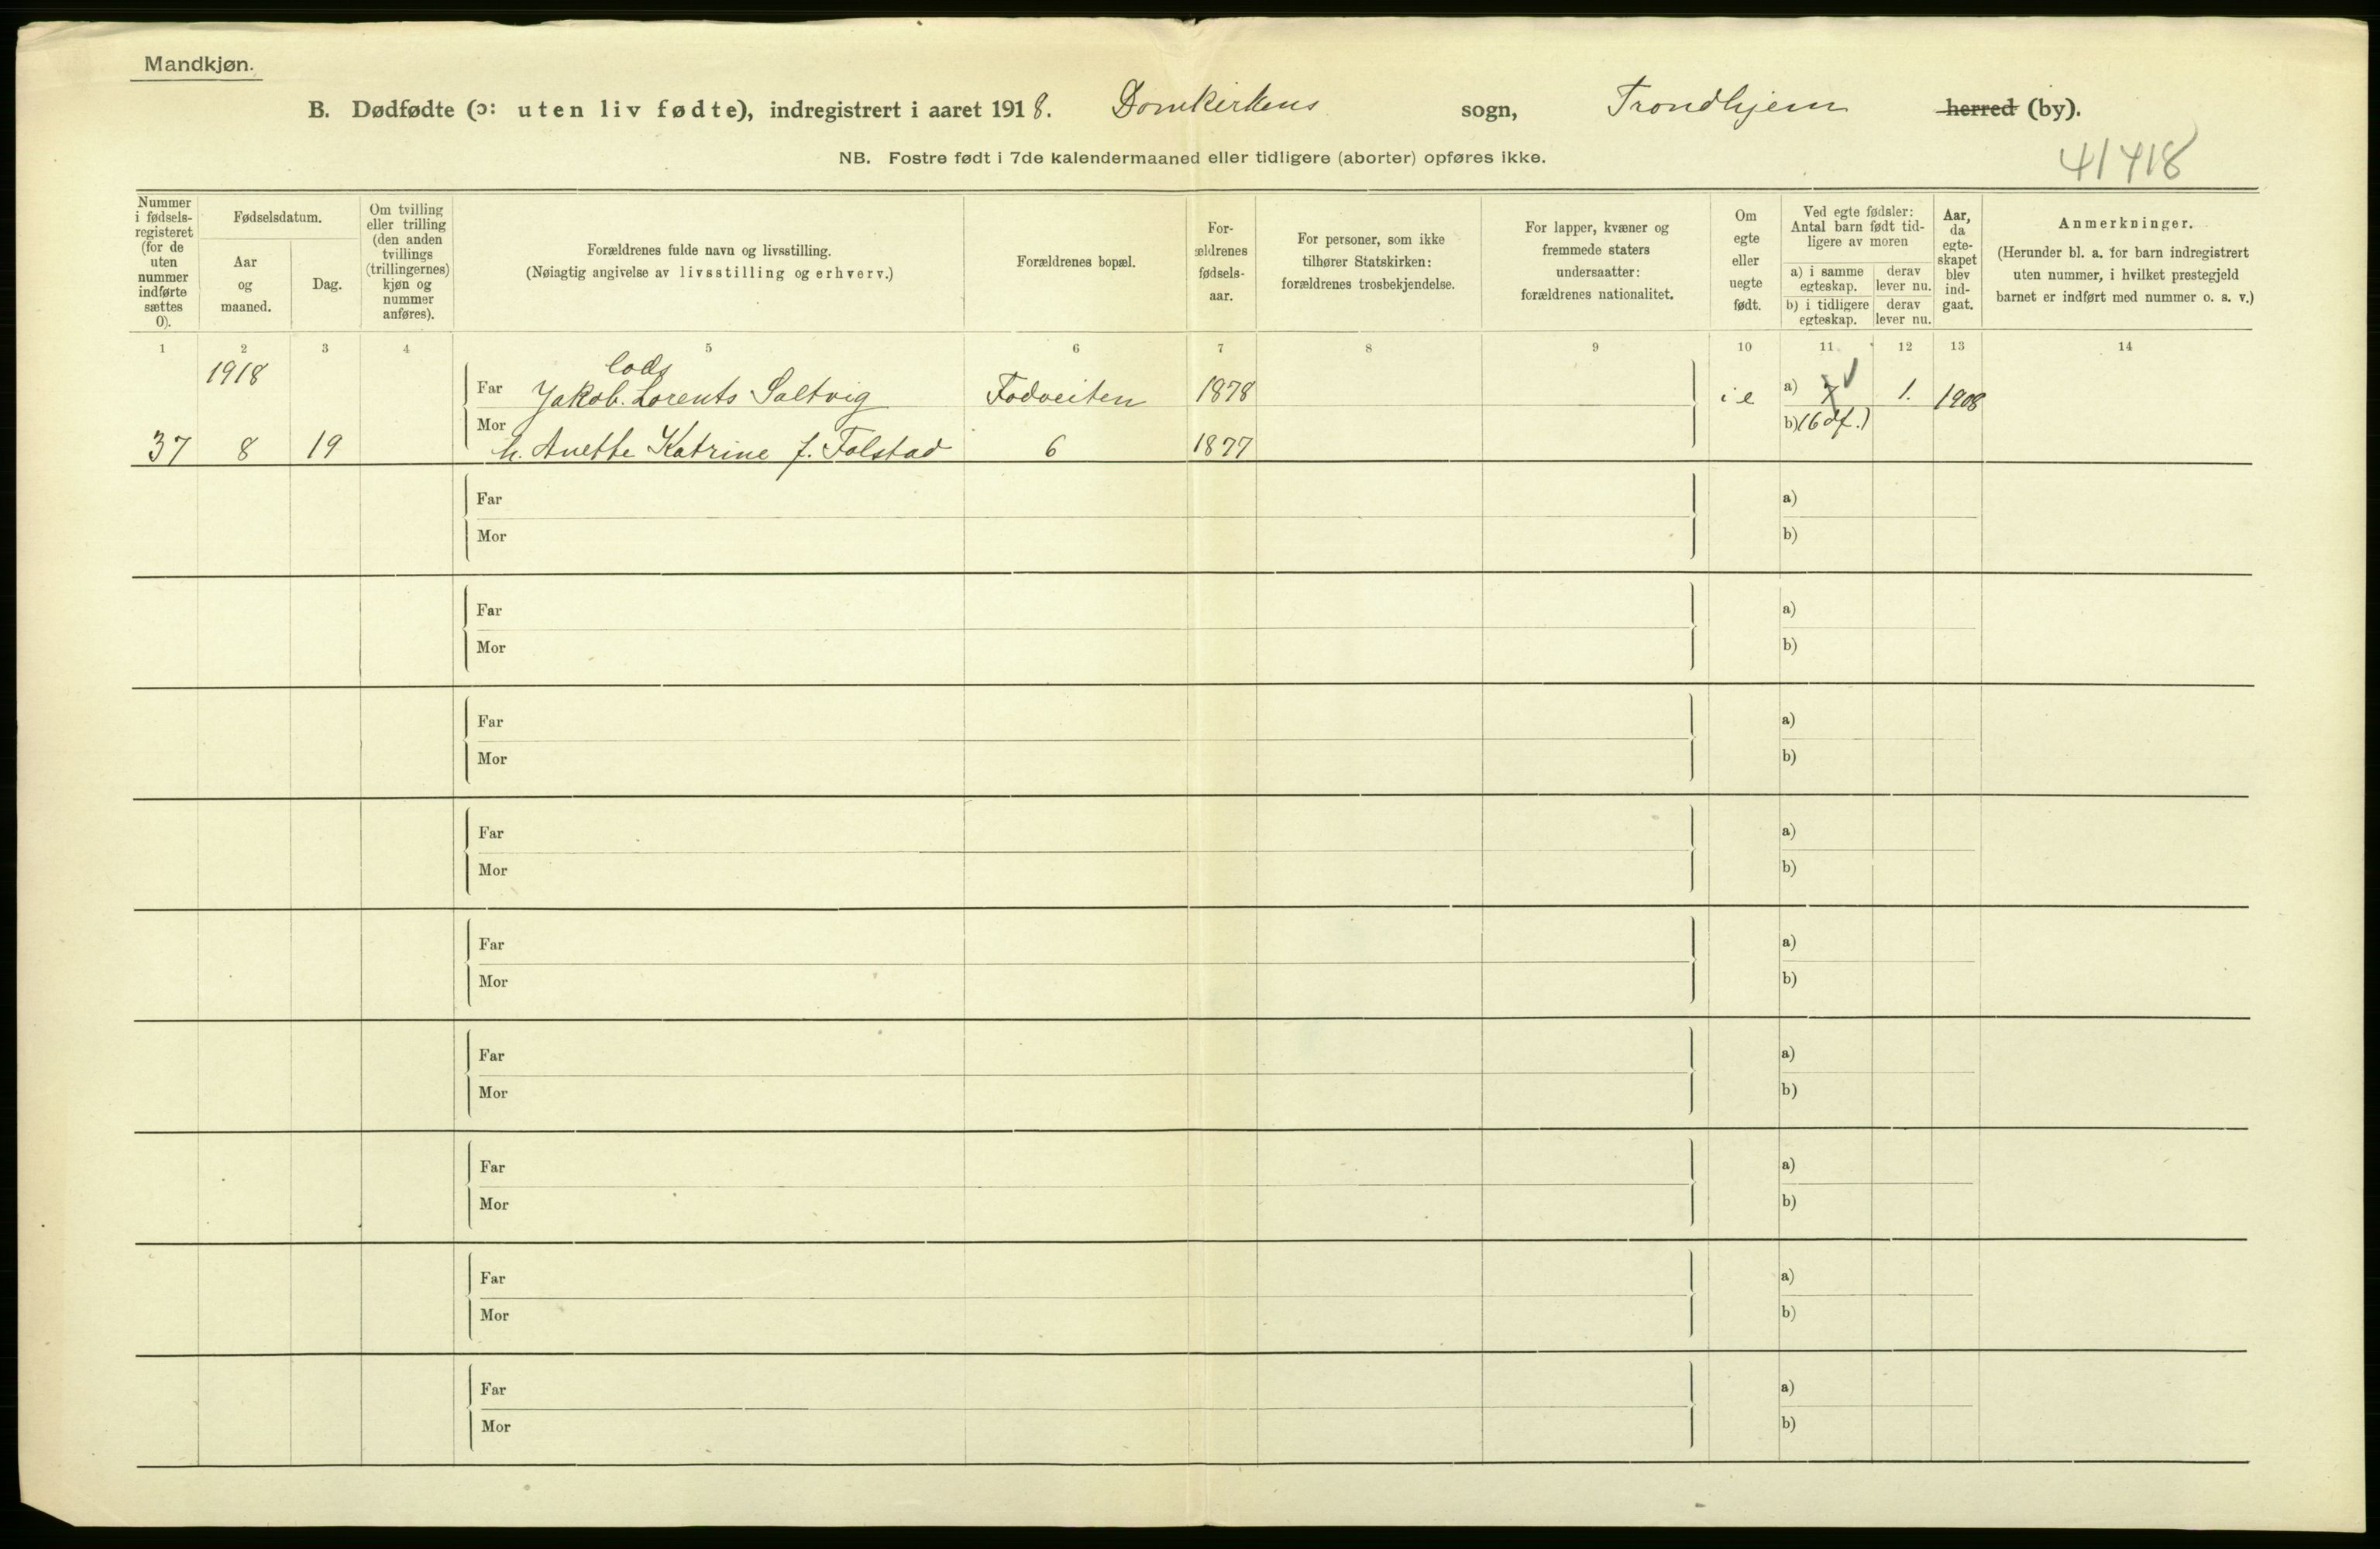 Mandkjøn.
B. Dødfødte (ɔ: uten liv fødte), indregistrert i aaret 1918. Domkirkens sogn, Trondhjem herred (by).
NB. Fostre født i 7de kalendermaaned eller tidligere (aborter) opføres ikke.
41418
Nummer i fødsels-registeret (for de uten nummer indførte sættes 0).
Fødselsdatum.
Aar og maaned.
Dag.
Om tvilling eller trilling (den anden tvillings (trillingernes) kjøn og nummer anføres).
Forældrenes fulde navn og livsstilling.
(Nøiagtig angivelse av livsstilling og erhverv.)
Forældrenes bopæl.
For-ældrenes fødsels-aar.
For personer, som ikke tilhører Statskirken: forældrenes trosbekjendelse.
For lapper, kvæner og fremmede staters undersaatter: forældrenes nationalitet.
Om egte eller uegte født.
Ved egte fødsler: Antal barn født tid-ligere av moren
a) i samme egteskap.
derav lever nu.
b) i tidligere egteskap.
derav lever nu.
Aar, da egte-skapet blev ind-gaat.
Anmerkninger.
(Herunder bl. a. for barn indregistrert uten nummer, i hvilket prestegjeld barnet er indført med nummer o. s. v.)
1 2 3 4 5 6 7 8 9 10 11 12 13 14
1918
lods
Far Jakob Lorents Saltvig Fodveiten 1878 i e a) 7 1. 1908
b) (6 df.)
37 8 19 Mor h. Anette Katrine f. Folstad 6 1877
Far a)
Mor b)
Far a)
Mor b)
Far a)
Mor b)
Far a)
Mor b)
Far a)
Mor b)
Far a)
Mor b)
Far a)
Mor b)
Far a)
Mor b)
Far a)
Mor b)